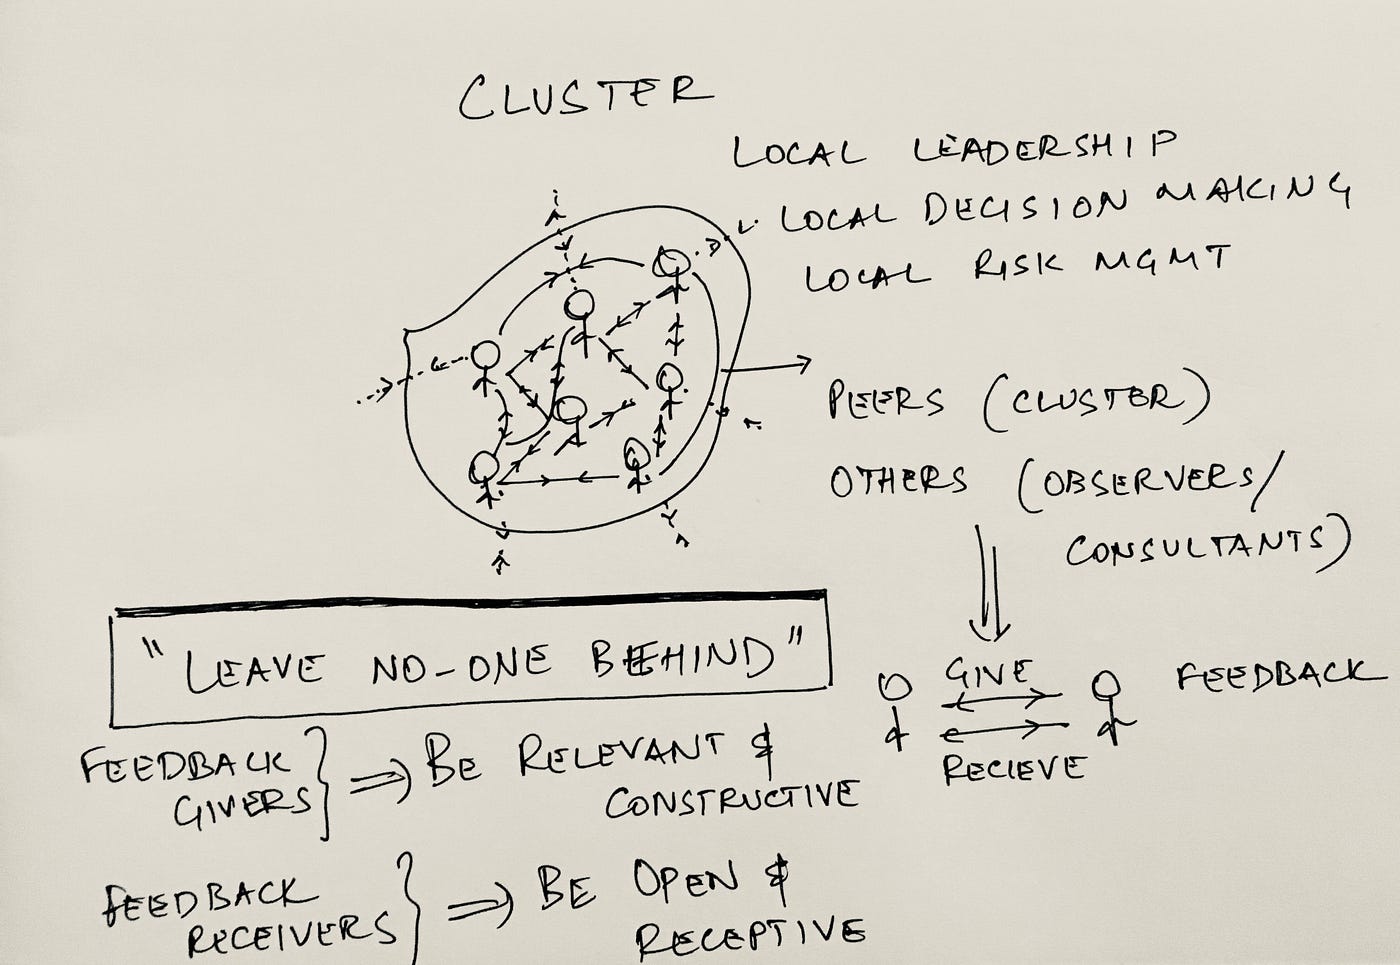 CLUSTER
LOCAL LEADERSHIP
LOCAL DECISION MAKING
LOCAL RISK MGMT
PEERS (CLUSTER)
OTHERS (OBSERVERS/
CONSULTANTS)
"LEAVE NO-ONE BEHIND"
GIVE
FEEDBACK
RECIEVE
FEEDBACK
GIVERS
BE RELEVANT &
CONSTRUCTIVE
FEEDBACK
RECEIVERS
BE OPEN &
RECEPTIVE